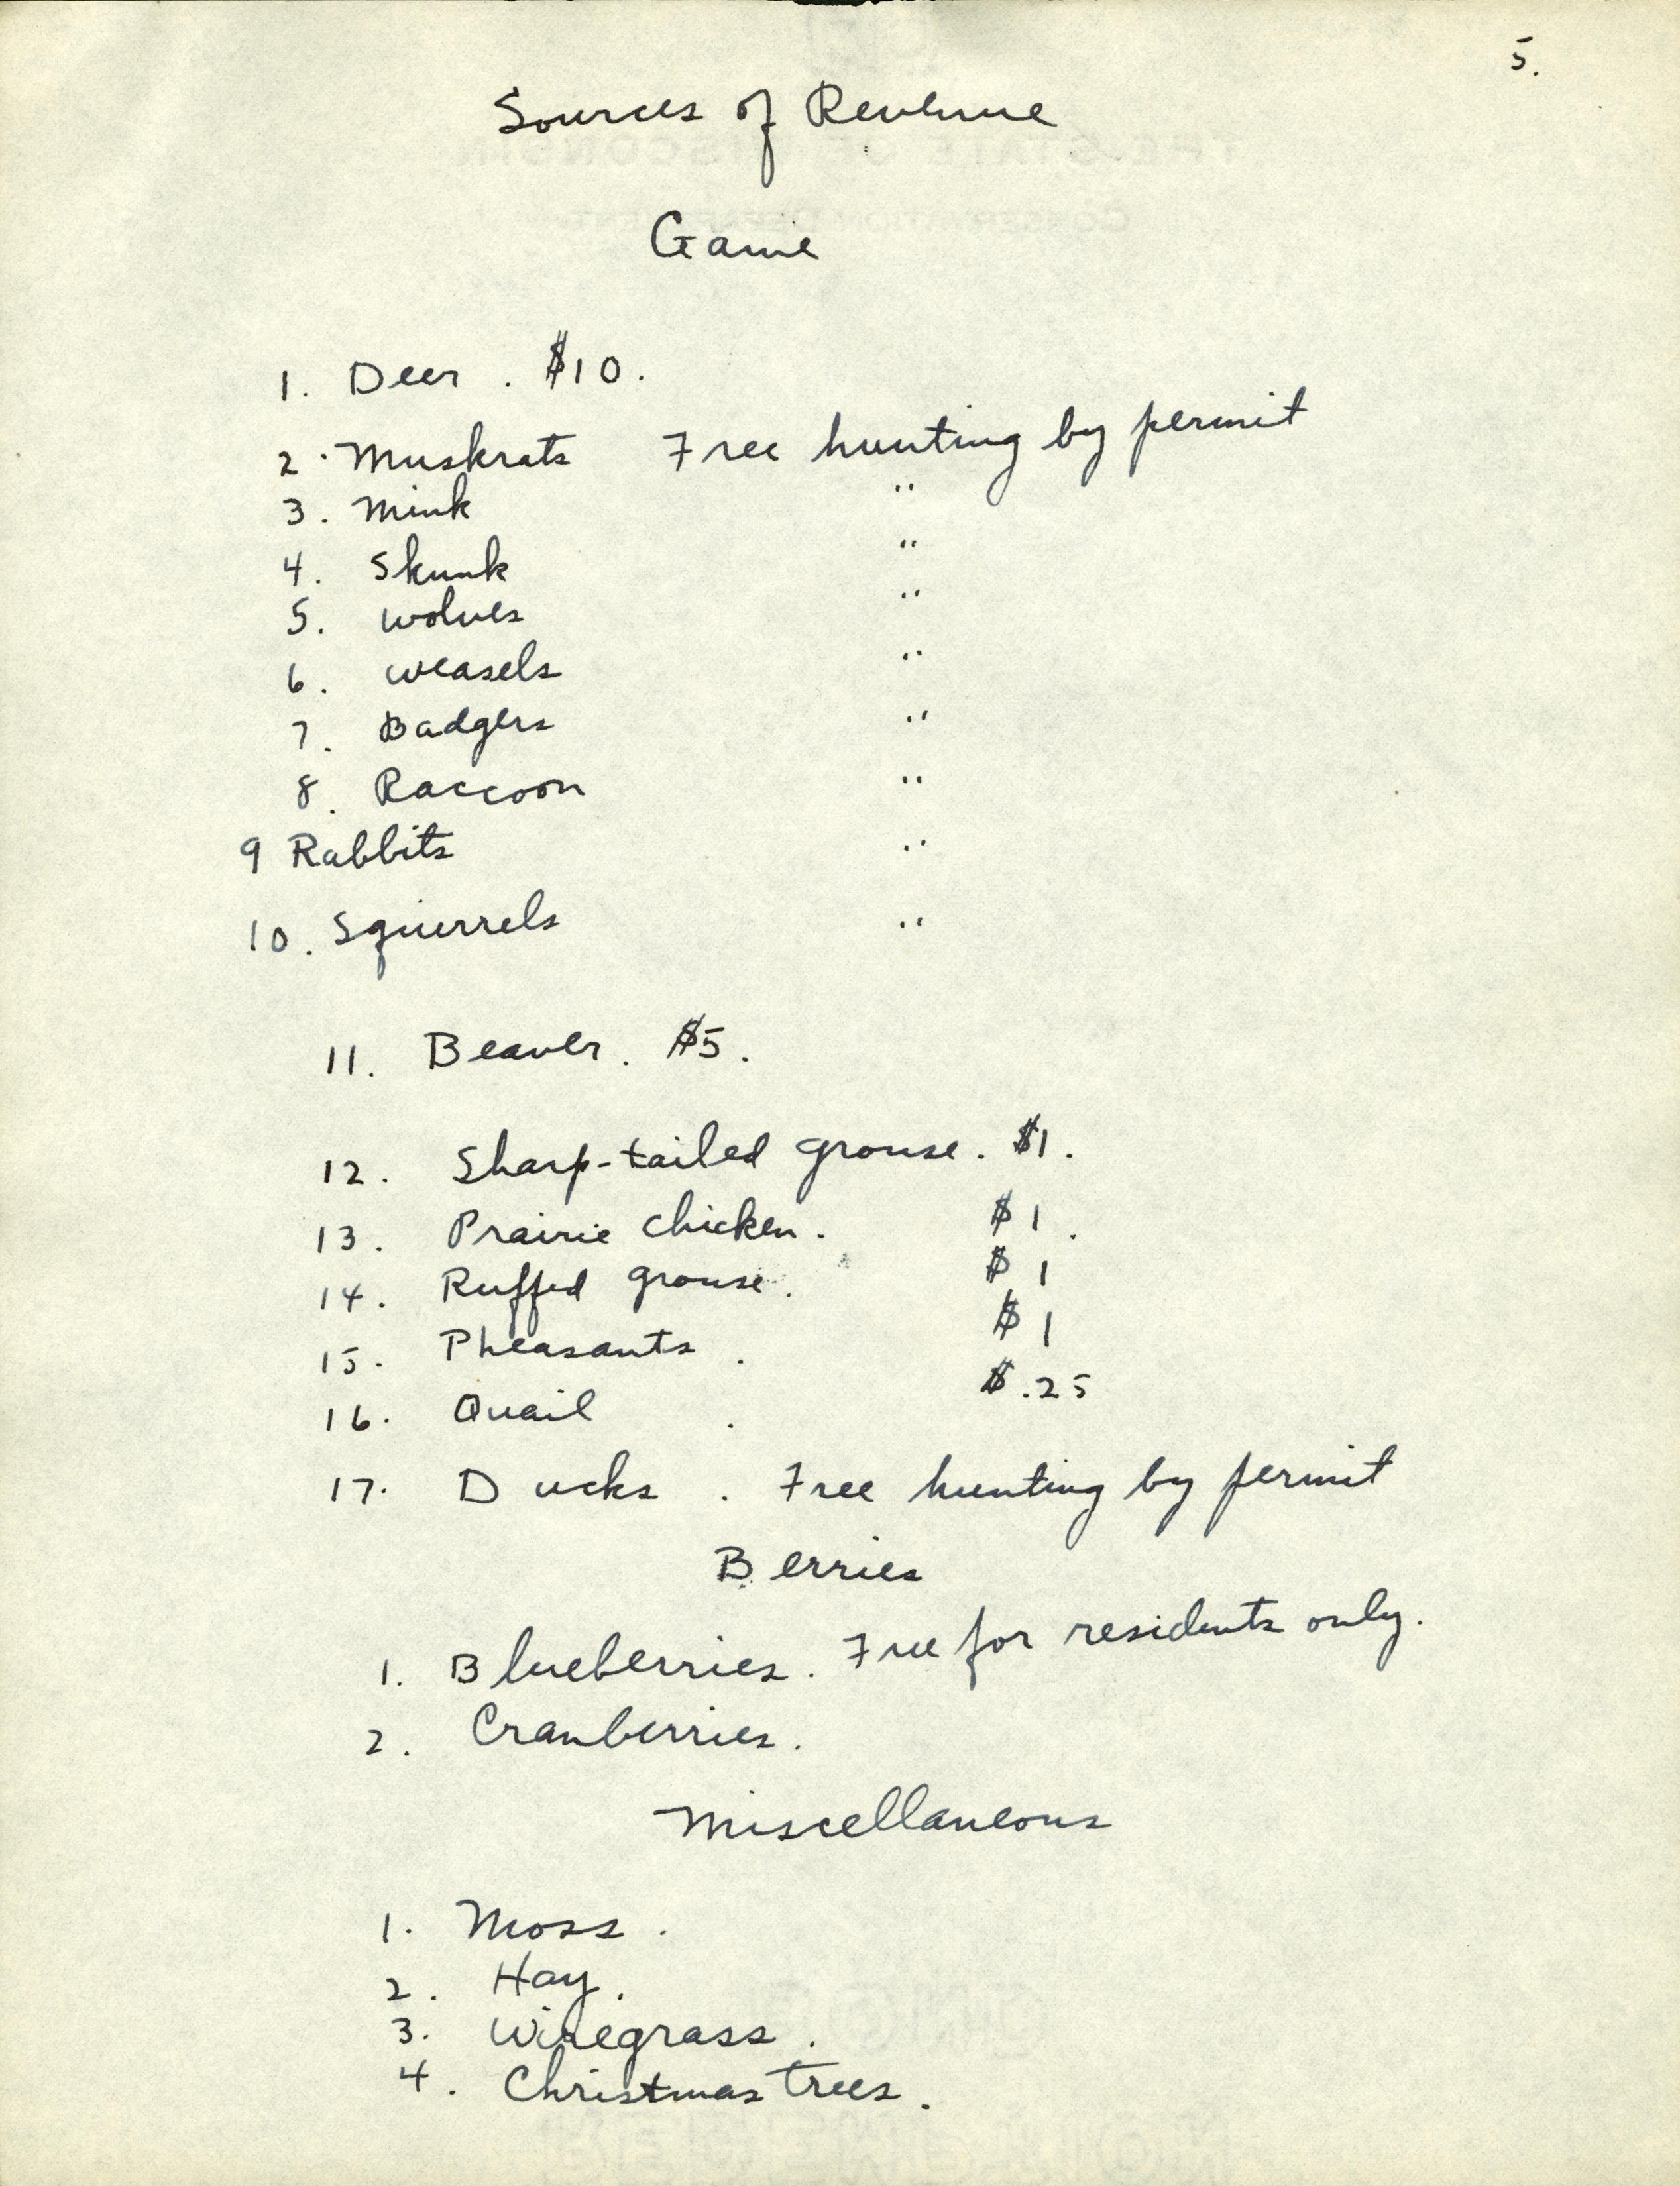 5.
Sources of Revenue
Game
1. Deer . $10.
2. Muskrats Free hunting by permit
3. Mink "
4. Skunk "
5. Wolves "
6. Weasels "
7. Badgers "
8. Raccoon "
9 Rabbits "
10. Squirrels "
11. Beaver. $5.
12. Sharp-tailed grouse. $1.
13. Prairie chicken. $1.
14. Ruffed grouse. $1
15. Pheasants . $1
16. Quail . $.25
17. Ducks . Free hunting by permit
Berries
1. Blueberries. Free for residents only.
2. Cranberries.
Miscellaneous
1. Moss.
2. Hay.
3. Wiregrass.
4. Christmas trees.